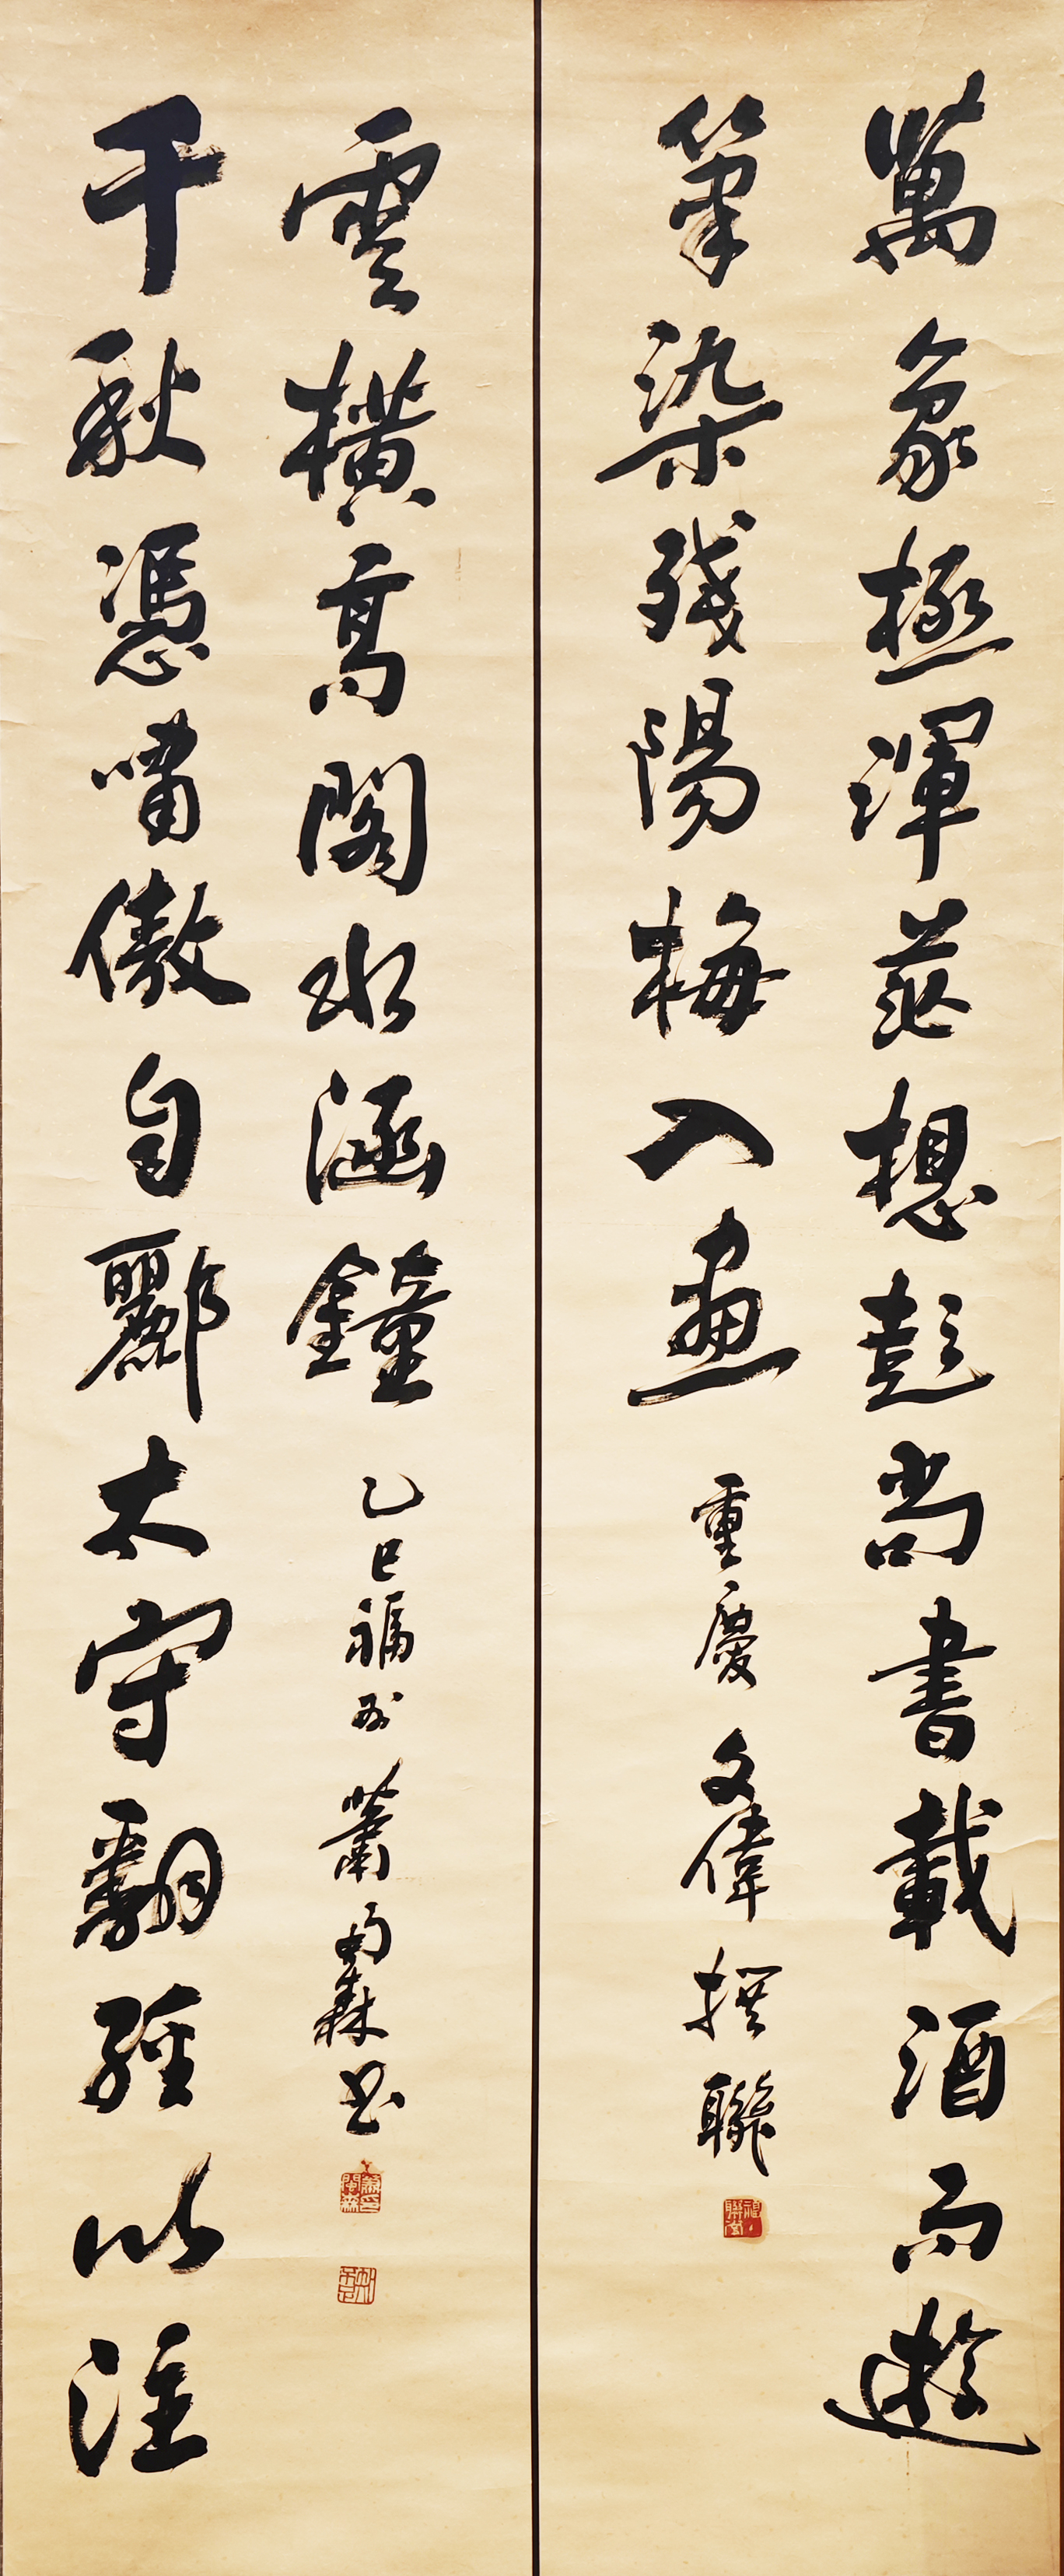 萬象極渾茫想彭尚書載酒而遊
筆染殘陽梅入畫
重慶文偉撰聯
千秋憑嘯傲自酈太守翻經以注
雲橫高閣水涵鐘
乙巳福州蕭閩森書